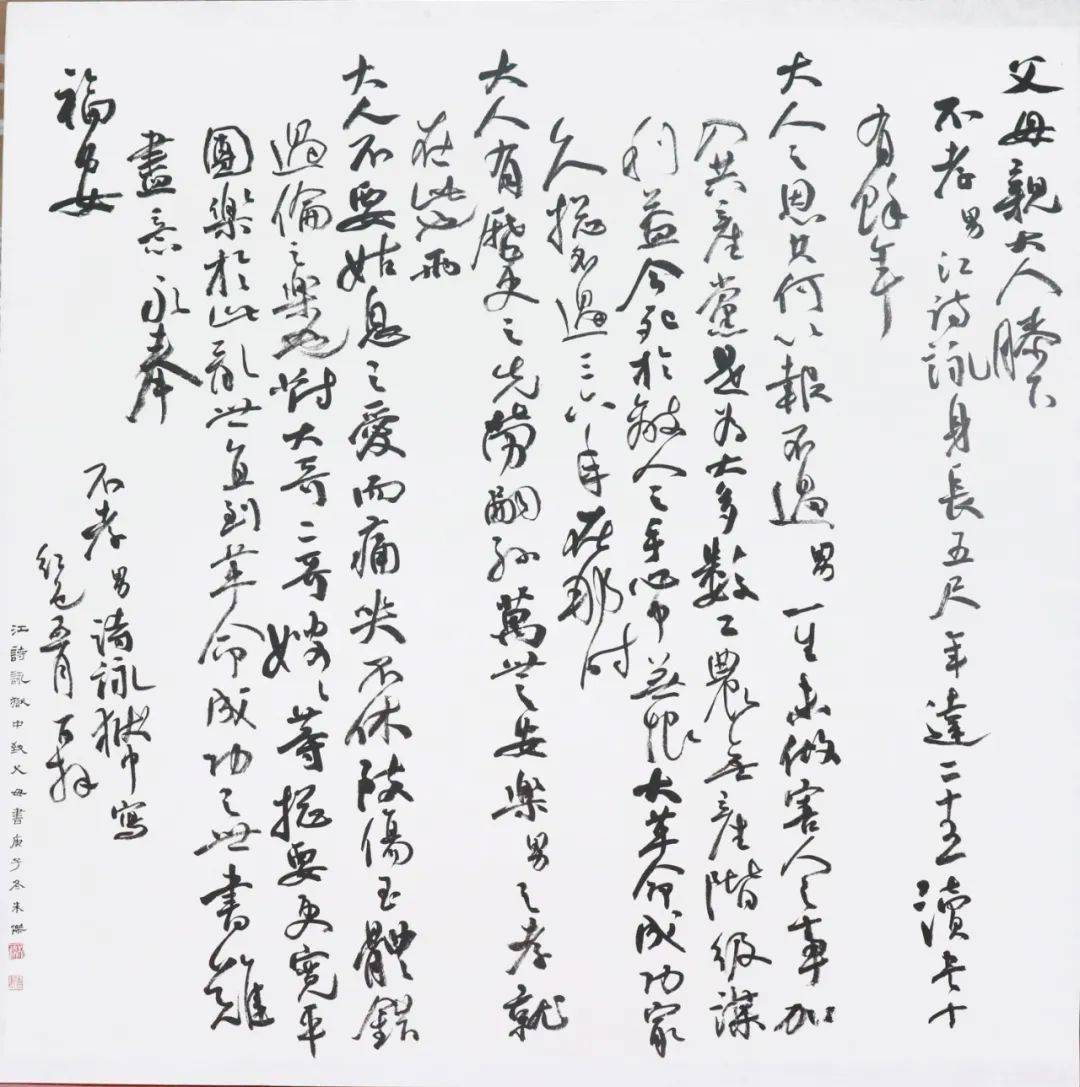 父母親大人膝下
不孝男江詩詠身長五尺年達二十五讀書十
有餘年
大人之恩只何以報不過男一生未做害人之事加
入共產黨是为大多數工農無產階級謀
利益今死於敵人之手心中無恨大革命成功家
久總不過三六年在那时
大人有歷史之光榮嗣孙萬世之安樂男之孝就
在此而
大人不要姑息之愛而痛哭不休致傷玉體錯
過倫之樂也附大哥二哥嫂々等總要更寬平
團樂於此亂世直到革命成功之世書難
盡意永奉
福安
不孝男詩詠獄中寫
紅色五月百拜
江詩詠獄中致父母書庚子冬朱傑